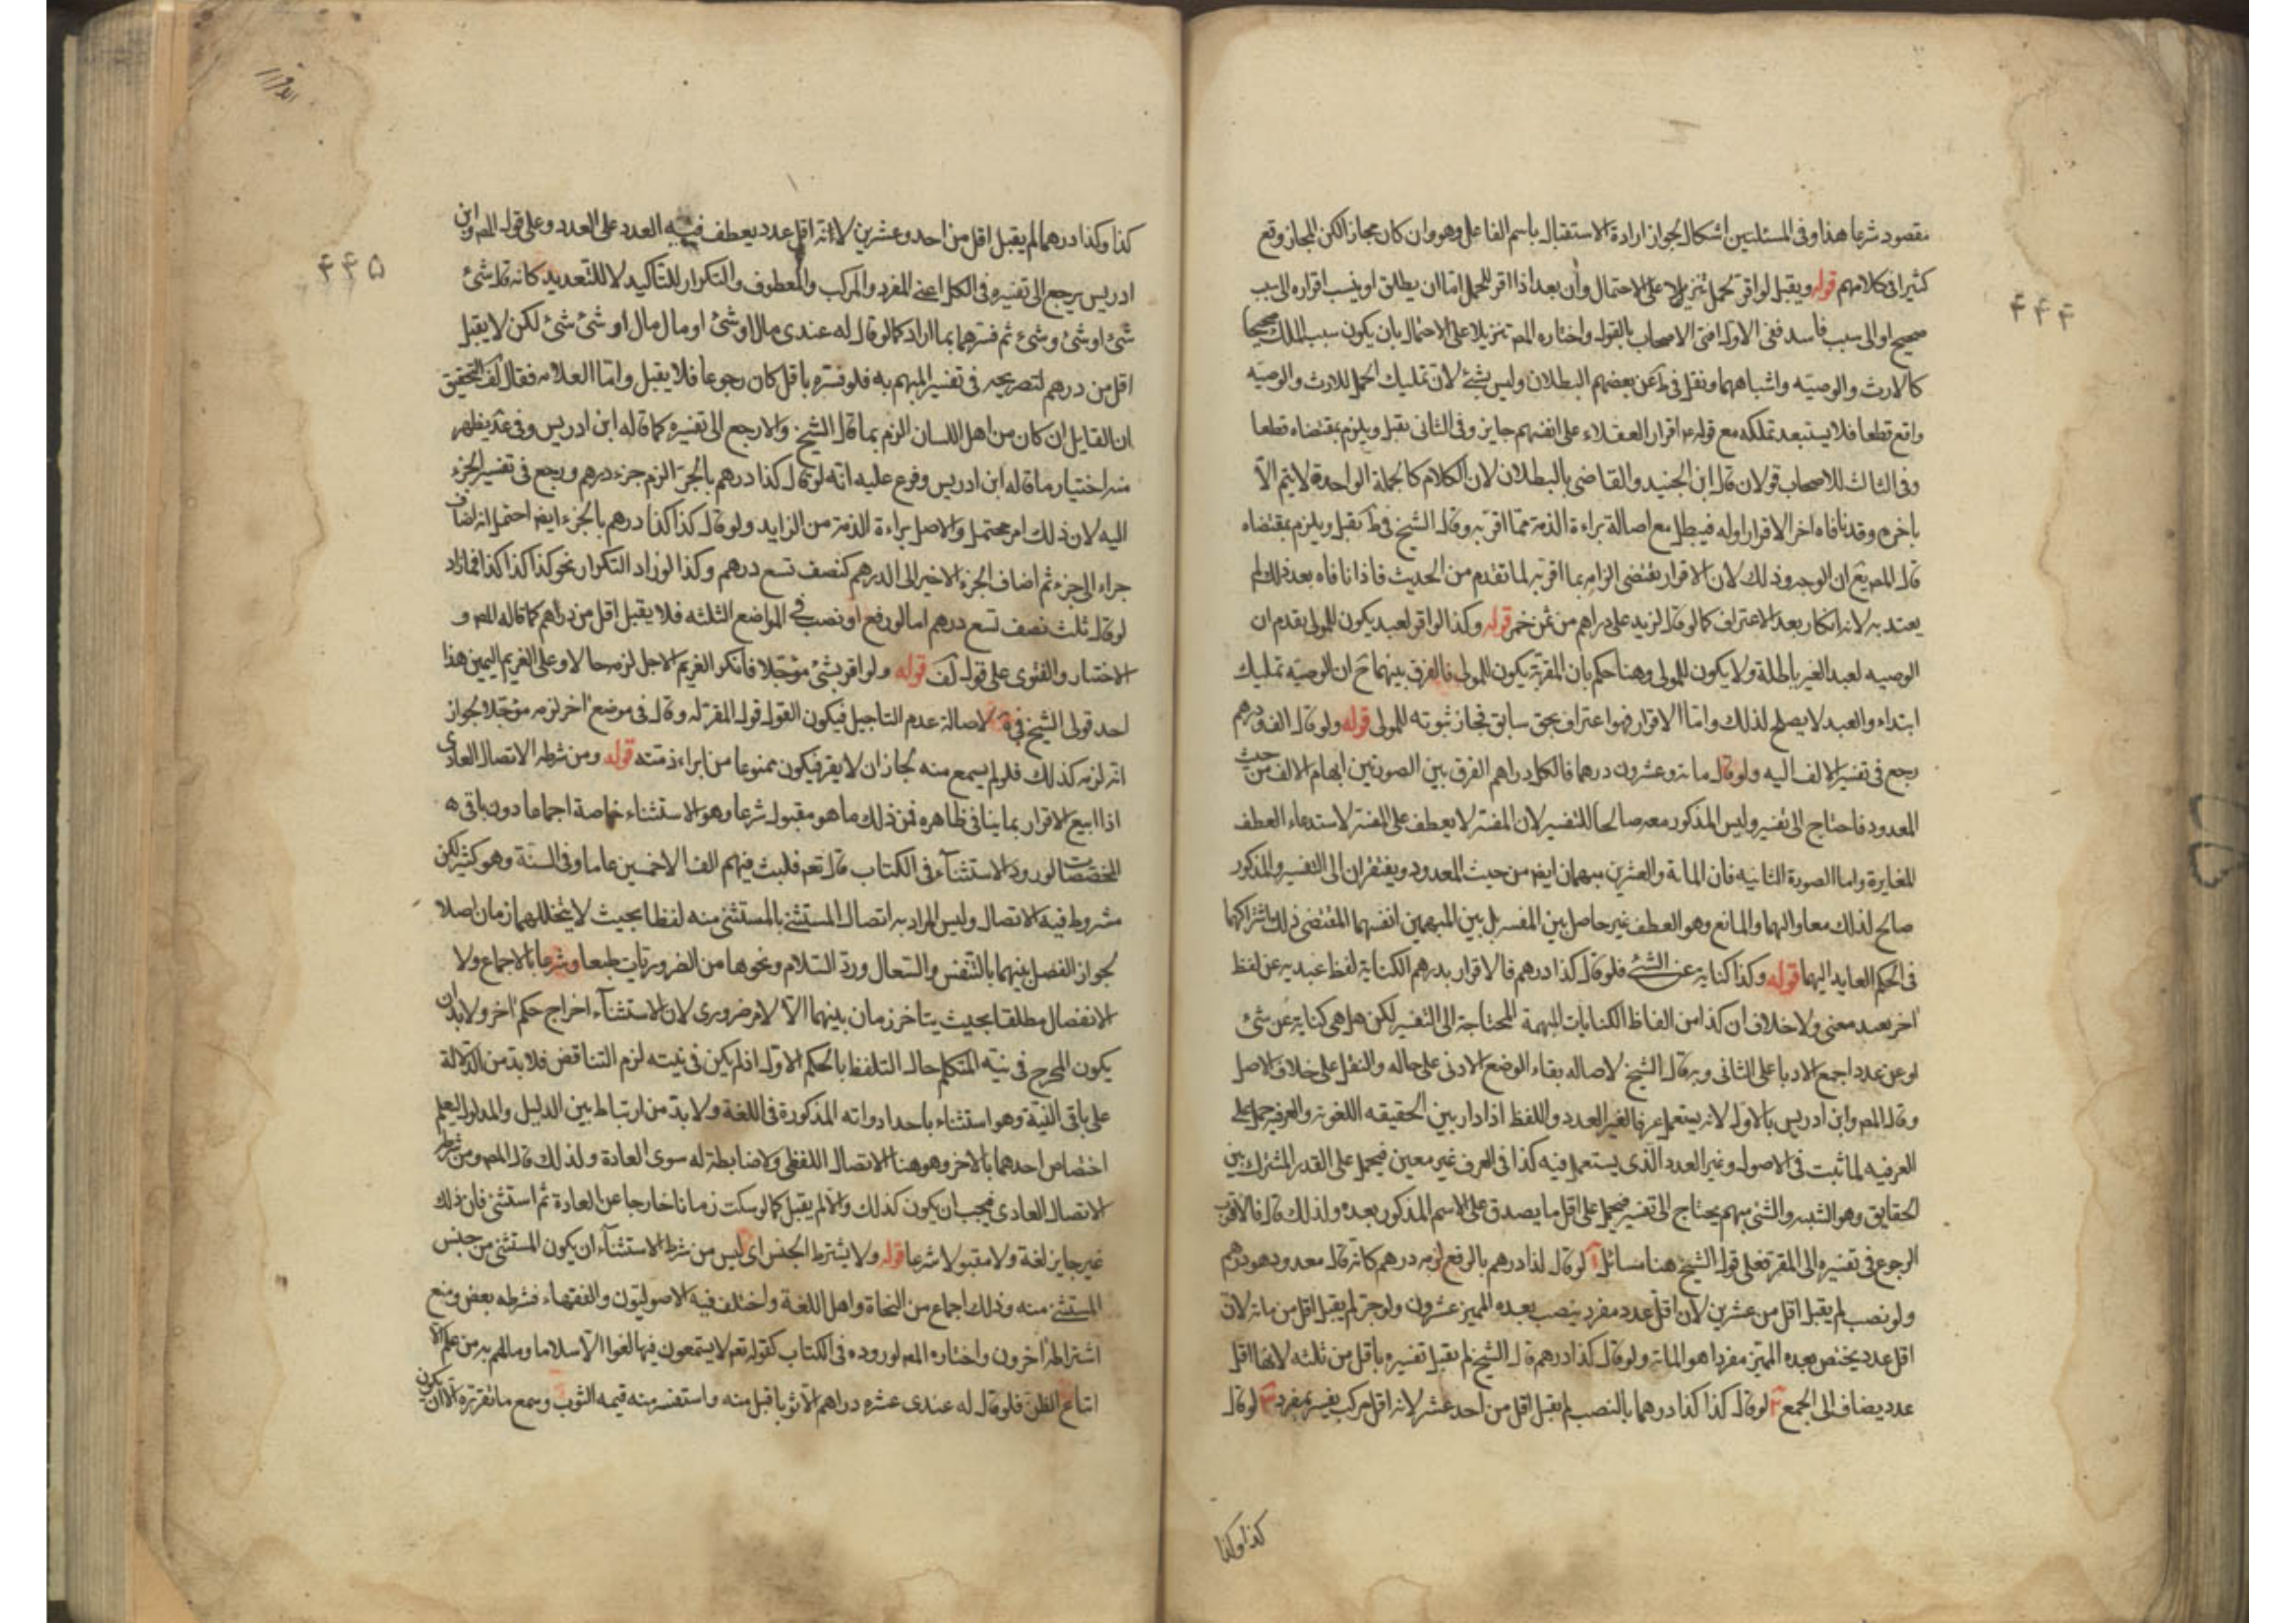 مقصود شرعا هذا وفى المسئلتين اشكال لجواز ارادة الاستقبال باسم الفاعل وهو وان كان مجازا لكن المجاز وقع
كثيرا فى كلامهم قوله ويقبل لو اقر لحمل تنزيلا على الاحتمال وأن بعد اذا اقر للحمل اما ان يطلق او ينسب اقراره الى سبب
صحيح او الى سبب فاسد ففى الاول افتى الاصحاب بالقول واختاره المص تنزيلا على الاحتمال بان يكون سبب الملك صحيحا
كالارث والوصيه واشباههما ونقل فى ط عن بعضهم البطلان وليس بشئ لان تمليك الحمل للارث والوصيه
واقع قطعا فلا يستبعد تملكه مع قوله ع اقرار العقلاء على انفسهم جايز وفى الثانى يقبل ويلزم بمقتضاه قطعا
وفى الثالث للاصحاب قولان قال ابن الجنيد والقاضى بالبطلان لان الكلام كالجملة الواحدة لا يتم الّا
باخره وقد نافاه اخر الاقرار اوله فيبطل مع اصالة براءة الذمة مما اقر به وقال الشيخ فى ط يقبل ويلزم بمقتضاه
قال المص يع ان الوجه وذلك لان الاقرار يقتضى الزامه بما اقر به لما تقدم من الحديث فاذا نافاه بعد ذلك لم
يعتد به لانه انكار بعد الاعتراف كما لو قال لزيد على دراهم من ثمن خمر قوله وكذا لو اقر لعبد يكون للمولى يقدم ان
الوصيه لعبد الغير باطلة ولا يكون للمولى وهنا حكم بان المقر به يكون للمولى فالفرق بينهما ح ان الوصيه تمليك
ابتداء والعبد لا يصلح لذلك واما الاقرار فهو اعتراف بحق سابق فجاز ثبوته للمولى قوله ولو قال الف ودرهم
رجع فى تفسير الالف اليه ولو قال مائه وعشرون درهما فالكل دراهم الفرق بين الصورتين ابهام الالف من حيث
المعدود فاحتاج الى تفسير وليس المذكور معه صالحا للتفسير لان المفسر لا يعطف على المفسر لاستدعاء العطف
المغايرة واما الصورة الثانيه فان المائة والعشرين مبهمان ايض من حيث المعدود ويفتقران الى التفسير والمذكور
صالح لذلك معا واليهما والمانع وهو العطف غير حاصل بين المفسر بل بين المبهمين انفسهما المقتضى ذلك اشتراكهما
فى الحكم العايد اليهما قوله وكذا كناية عن الشئ فلو قال كذا درهم فالاقرار بدرهم الكناية لفظ عبر به عن لفظ
اخر بعيد معنى ولا خلاف ان كذا من الفاظ الكنايات المبهمة المحتاجة الى التفسير لكن هل هى كناية عن شئ
او عن عدد اجمع الادبا على الثانى وبه قال الشيخ لاصاله بقاء الوضع الادبى على حاله والنقل على خلاف الاصل
وقال المص وابن ادريس بالاول لانه يستعمل عرفا لغير العدد واللفظ اذا دار بين الحقيقه اللغويه والعرفيه حمل على
العرفيه لما ثبت فى الاصول وغير العدد الذى يستعمل فيه كذا فى العرف غير معين فيحمل على القدر المشترك بين
الحقايق وهو الشئ والشئ مبهم يحتاج الى تفسير فيحمل على اقل ما يصدق على الاسم المذكور بعده ولذلك قال فالاقرب
الرجوع فى تفسيره الى المقر فعلى قول الشيخ هنا مسائل آ لو قال كذا درهم بالرفع لزمه درهم كانه قال معدود هو درهم
ولو نصب لم يقبل اقل من عشرين لان اقل عدد مفرد ينصب بعده المميز عشرون ولو جر لم يقبل اقل من مائه لان
اقل عدد يختص بعده المميز مفردا هو المائه ولو قال كذا درهم قال الشيخ لم يقبل تفسيره باقل من ثلثه لانها اقل
عدد يضاف الى الجمع لو قال كذا كذا درهما بالنصب لم يقبل اقل من احد عشر لانه اقل مركب يفسر بمفرد لو قال
كذا وكذا
۴۴۴
كذا وكذا درهما لم يقبل اقل من احد وعشرين لانه اقل عدد يعطف فيه العدد على العدد وعلى قول المص وابن
ادريس يرجع الى تفسيره فى الكل اعنى المفرد والمركب والمعطوف والتكرار للتأكيد لا للتعديد كانه قال شئ
شئ او شئ وشئ ثم فسرهما بما اراد كما لو قال له عندى مال او شئ او مال مال او شئ شئ لكن لا يقبل
اقل من درهم لتصريحه فى تفسير المبهم به فلو فسره باقل كان رجوعا فلا يقبل واما العلامه فقال فى لف التحقيق
ان القايل ان كان من اهل اللسان الزم بما قال الشيخ والا رجع الى تفسيره كما قاله ابن ادريس وفى عد يظهر
منه اختيار ما قاله ابن ادريس وفرع عليه انه لو قال كذا درهم بالجر الزم جزء درهم ويرجع فى تفسير الجزء
اليه لان ذلك امر محتمل والاصل براءة الذمة من الزايد ولو قال كذا كذا درهم بالجر ايض احتمل انه اضاف
جزاء الى جزء ثم اضاف الجزء الاخير الى الدرهم كنصف تسع درهم وكذا لو زاد التكرار نحو كذا كذا كذا فما زاد
لو قال ثلث نصف تسع درهم اما لو رفع او نصب فى المواضع الثلثه فلا يقبل اقل من درهم كما قاله المص و
الاختيار والفتوى على قول لف قوله ولو اقر بشئ موجلا فانكر الغريم الاجل لزمه حالا وعلى الغريم اليمين هذا
احد قولى الشيخ فى لاصالة عدم التاجيل فيكون القول قول المقر له وقال فى موضع اخر لزمه موجلا لجواز
انه لزمه كذلك فلو لم يسمع منه لجاز ان لا يقر فيكون ممنوعا من ابراء ذمته قوله ومن شرطه الاتصال العادى
اذا ابيع الاقرار بما ينافى ظاهره فمن ذلك ما هو مقبول شرعا وهو الاستثناء خاصة اجماعا دون باقى
المخصصات لورود الاستثنآء فى الكتاب قال تعم فلبث فيهم الف الا خمسين عاما وفى السنة وهو كثير لكن
مشروط فيه الاتصال وليس المراد به اتصال المستثنى بالمستثنى منه لفظا بحيث لا يتخللهما زمان اصلا
لجواز الفصل بينهما بالتنفس والسعال ورد السلام ونحوها من الضروريات طبعا وشرعا بالاجماع ولا
الانفصال مطلقا بحيث يتاخر زمان بينهما الّا لامر ضرورى لان الاستثنآء اخراج حكم اخر ولا بد ان
يكون المخرج فى نيته المتكلم حال التلفظ بالحكم الاول اذ لم يكن فى نيته لزم التناقض فلا بد من الدلالة
على باقى النية وهو استثناء باحد ادواته المذكورة فى اللغة ولا بد من ارتباط بين الدليل والمدلول ليعلم
اختصاص احدهما بالاخر وهو هنا الاتصال اللفظى ولا ضابطة له سوى العادة ولذلك قال المص ومن شرطه
الاتصال العادى فيجب ان يكون كذلك والّا لم يقبل كما لو سكت زمانا خارجا عن العادة ثم استثنى فان ذلك
غير جايز لغة ولا مقبولا شرعا قوله ولا يشترط الجنس اى ليس من شرط الاستثنآء ان يكون المستثنى من جنس
المستثنى منه وذلك اجماع من النحاة واهل اللغة واختلف فيه الاصوليون والفقهاء فشرطه بعض ومنع
اشتراطه اخرون واختاره المص لوروده فى الكتاب كقوله تعم لا يسمعون فيها لغوا الّا سلاما وما لهم به من علم الّا
اتباع الظن فلو قال له عندى عشره دراهم الّا ثوبا قبل منه واستفسر منه قيمه الثوب وسمع ما تقرره الّا ان يكون
۴۴۵